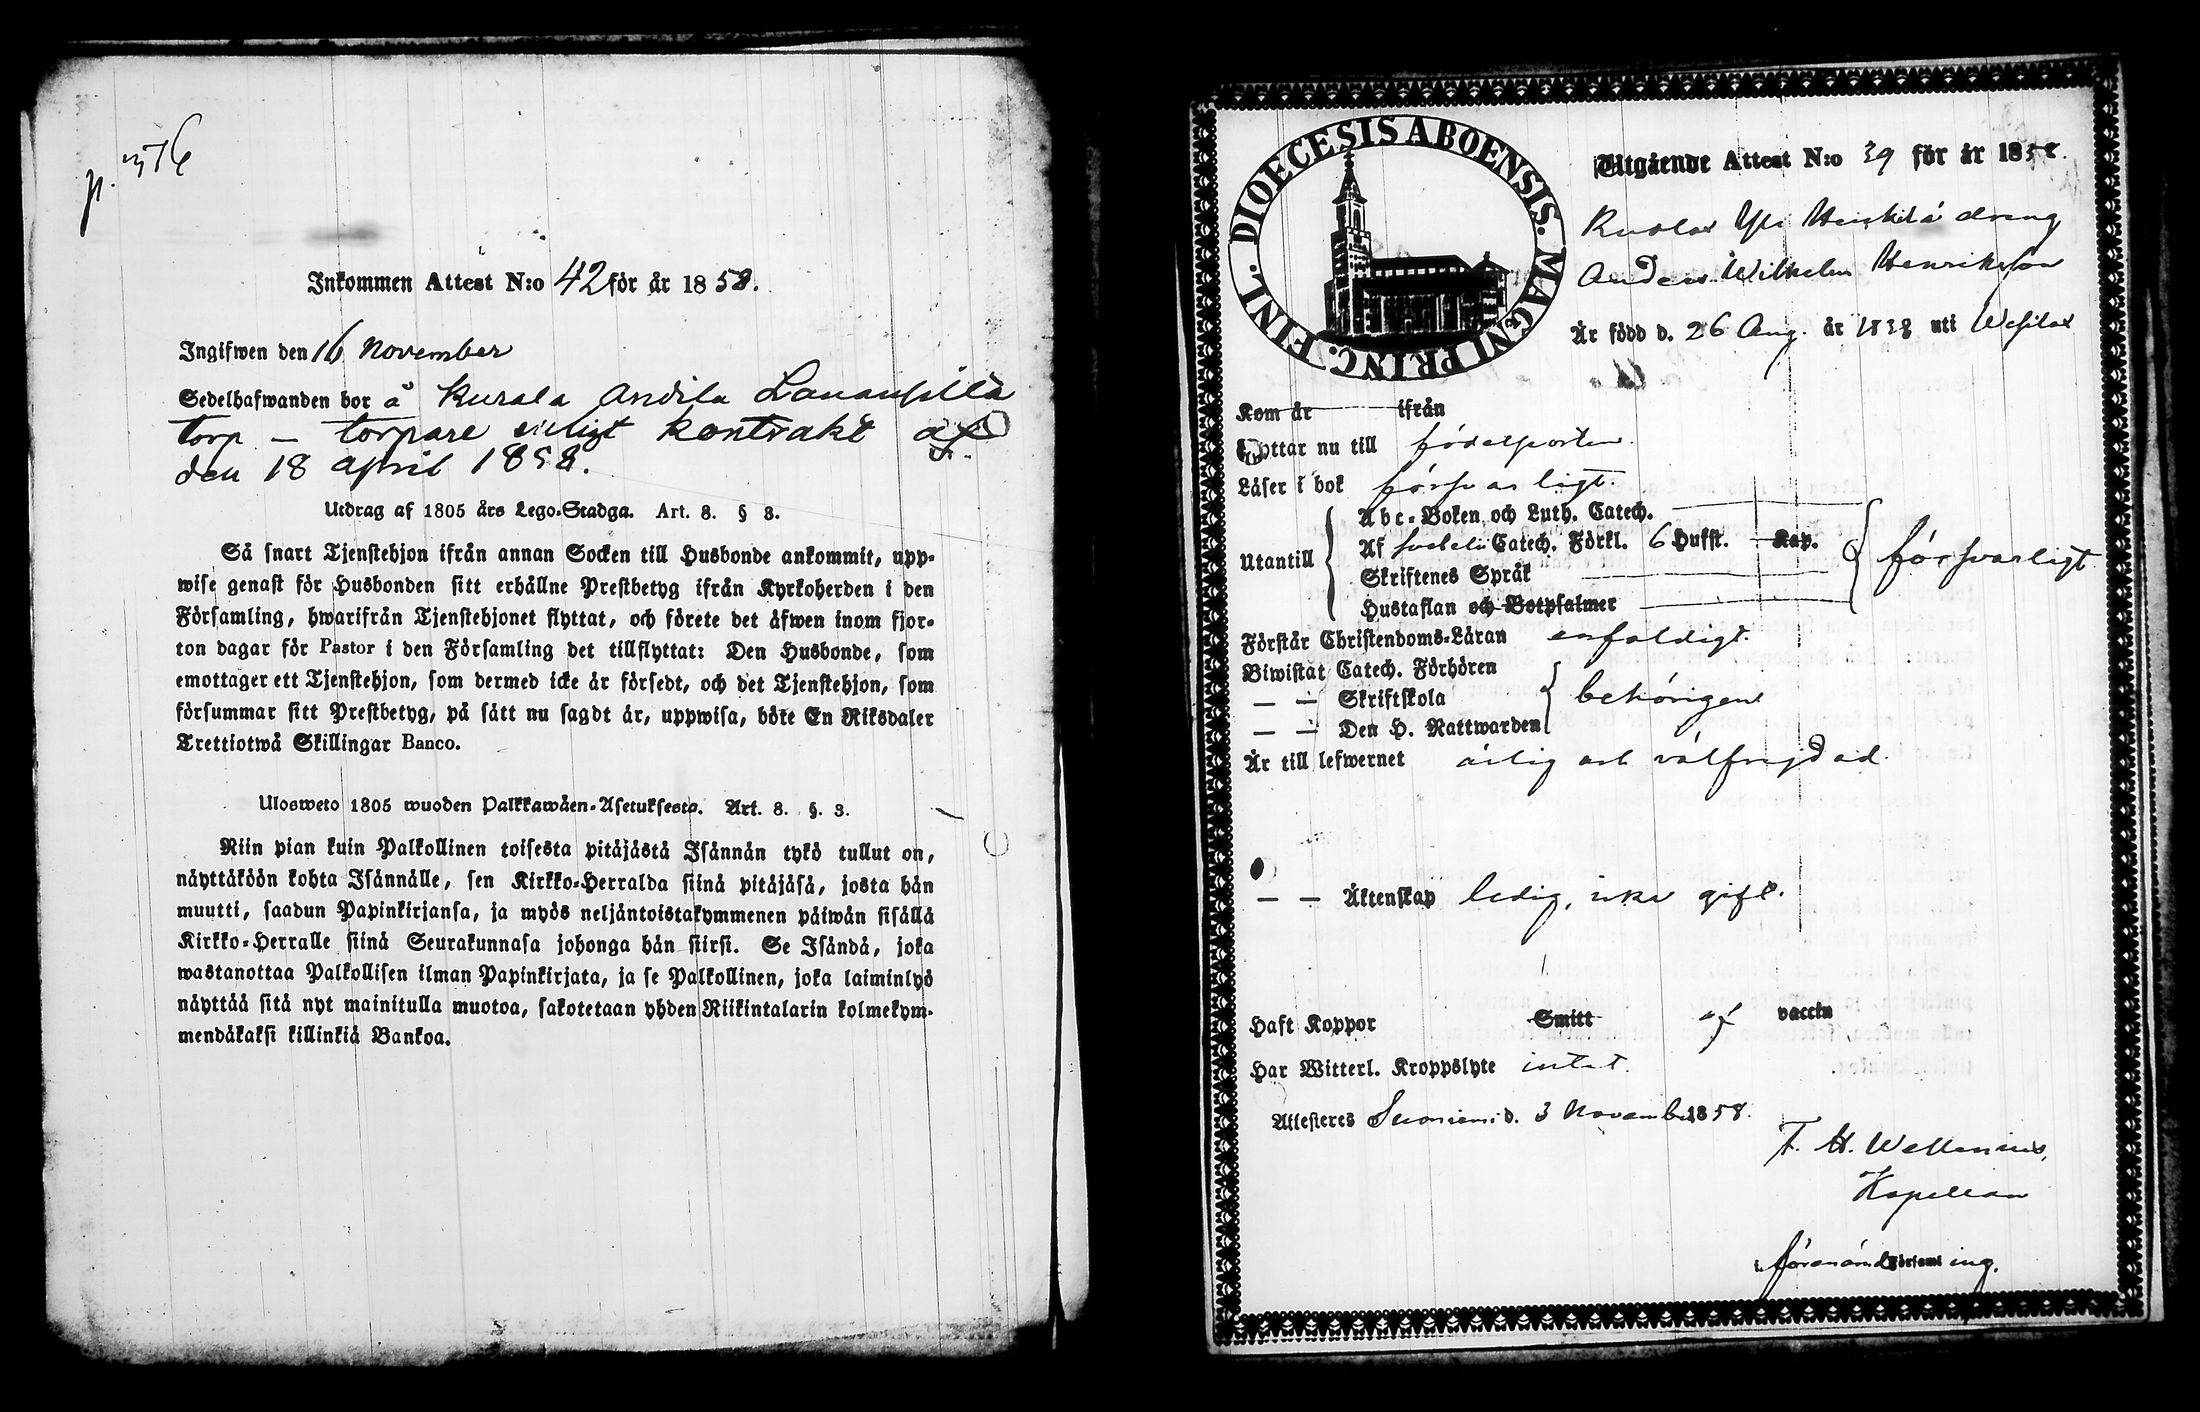 p. 376
Inkommen Attest N:o 42 för år 1858.
Ingifwen den 16 November
Sedelhafwanden bor å Kurala Andila
torp — torpare enligt kontrakt af
den 18 april 1858.
Utdrag af 1805 års Lego-Stadga. Art. 8. § 3.
Så snart Tjenstehjon ifrån annan Socken till Husbonde ankommit, upp-
wise genast för Husbonden sitt erhållne Prestbetyg ifrån Kyrkoherden i den
Församling, hwarifrån Tjenstehjonet flyttat, och förete det äfwen inom fjor-
ton dagar för Pastor i den Församling det tillflyttat: Den Husbonde, som
emottager ett Tjenstehjon, som dermed icke är försedt, och det Tjenstehjon, som
försummar sitt Prestbetyg, på sätt nu sagdt är, uppwisa, böte En Riksdaler
Trettiotwå Skillingar Banco.
Ulosweto 1805 wuoden Palkkawäen-Asetuksesta. Art. 8. §. 3.
Niin pian kuin Palkollinen toisesta pitäjästä Isännän tykö tullut on,
näyttäköön kohta Isännälle, sen Kirkko-Herralda siinä pitäjäsä, josta hän
muutti, saadun Papinkirjansa, ja myös neljäntoistakymmenen päiwän sisällä
Kirkko-Herralle siinä Seurakunnasa johonga hän siirsi. Se Isändä, joka
wastanottaa Palkollisen ilman Papinkirjata, ja se Palkollinen, joka laiminlyö
näyttää sitä nyt mainitulla muotoa, sakotetaan yhden Riikintalarin kolmekym-
mendäkaksi killinkiä Bankoa.
DIOECESIS ABOENSIS. MAGNI PRINC. FINL.
Utgående Attest N:o 39 för år 1858.
Heikilä dreng
Anders Wilhelm Henriksson
Är född d. 26 Aug. år 1838 uti Wesilax
Kom år ifrån
Flyttar nu till födelseorten
Läser i bok försvarligt.
Abc-Boken och Luth. Catech.
Utantill Af Svebelii Catech. Förkl. 6 Hufst. Kap. försvarligt
Skriftenes Språk
Hustaflan och Botpsalmer
Förstår Christendoms-Läran enfaldigt.
Biwistat Catech. Förhören
— — Skriftskola behörigen
— — Den H. Nattwarden
Är till lefwernet ärlig och välfrejdad.
— — Äktenskap ledig, icke gift.
Haft Koppor Smitt af vaccin
Har Witterl. Kroppslyte intet.
Attesteres Suoniemi d. 3 November 1858.
Wellenius,
Kapellan
i förenämnd Församling.